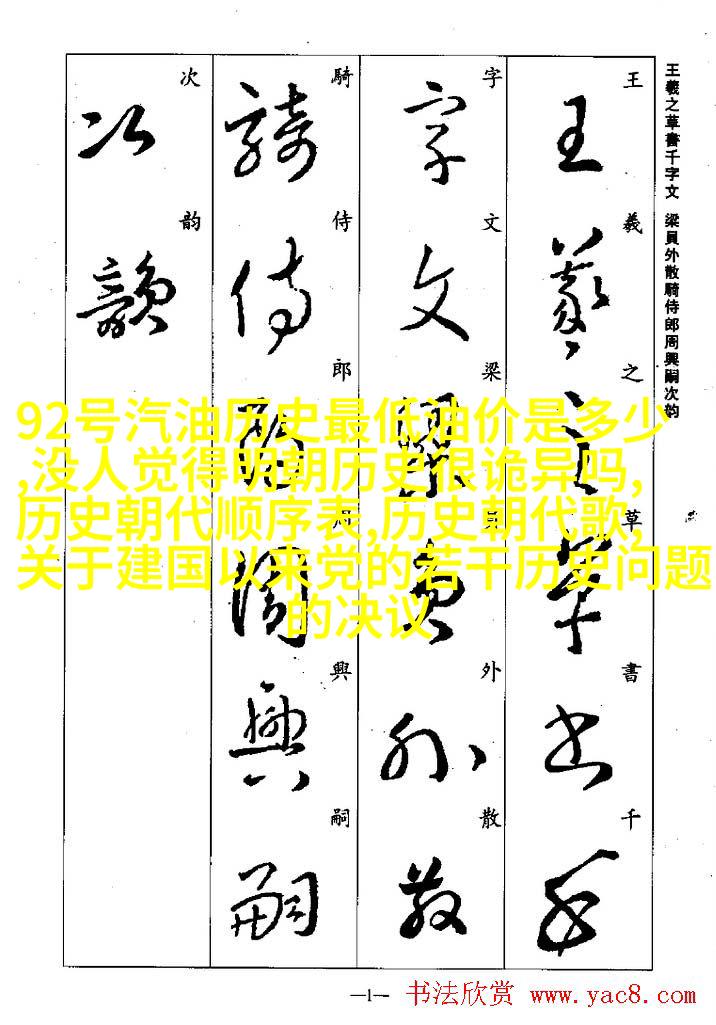 王羲之草書千字文 梁員外散騎侍郎周興嗣次韵
王羲之草書千
字文梁員外散
騎侍郎周興嗣
次韵
92号汽油历史最低油价是多少
,没人觉得明朝历史很诡异吗,
历史朝代顺序表,历史朝代歌,
关于建国以来党的若干历史问题
的决议
—1—
书法欣赏 www.yac8.com